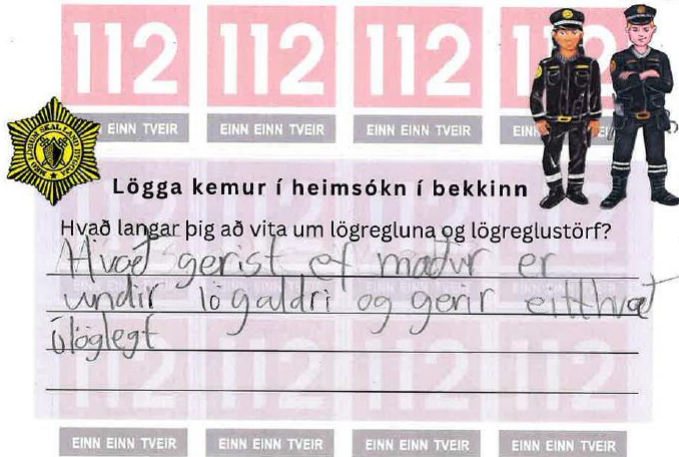 112 112 112 112
EINN TVEIR EINN EINN TVEIR EINN EINN TVEIR
MEÐ LÖGUM SKAL LAND BYGGJA
Lögga kemur í heimsókn í bekkinn
Hvað langar þig að vita um lögregluna og lögreglustörf?
Hvað gerist ef maður er
undir lögaldri og gerir eitthvað
ólöglegt
112 112 112 112
EINN EINN TVEIR EINN EINN TVEIR EINN EINN TVEIR EINN EINN TVEIR